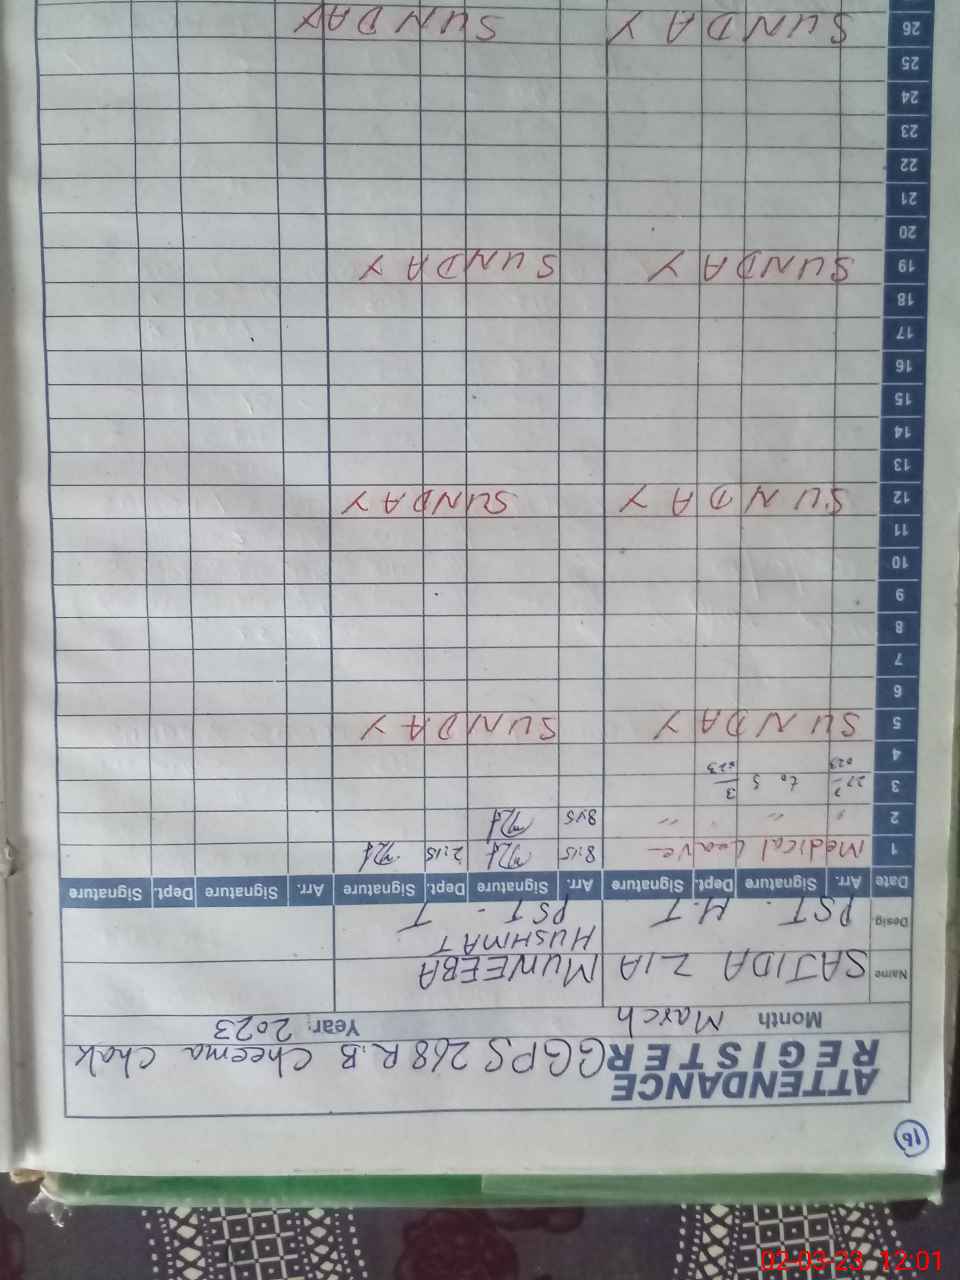 16
ATTENDANCE
REGISTER GGPS 268 R.B Cheema Chak
Month March Year: 2023
Name SAJIDA ZIA MUNEEBA
HUSHMAT
Desig. PST. H.T PST - T
Date Arr. Signature Dept. Signature Arr. Signature Dept. Signature Arr. Signature Dept. Signature
1 Medical Leave 8:15 2:15
2 " " " " 8:15
3 to 3
4
5 SUNDAY SUNDAY
6
7
8
9
10
11
12 SUNDAY SUNDAY
13
14
15
16
17
18
19 SUNDAY SUNDAY
20
21
22
23
24
25
26 SUNDAY SUNDAY
02-03-23 12:01